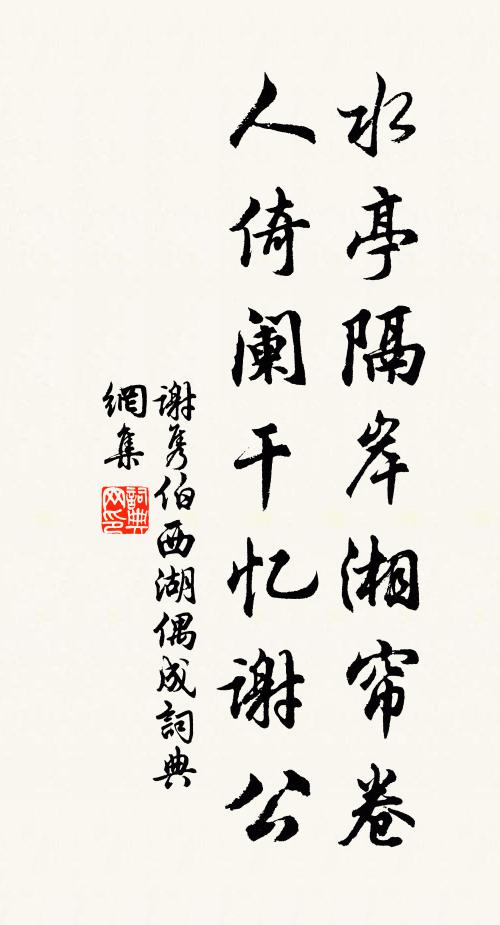 水亭隔岸湘帘卷
人倚阑干忆谢公
谢隽伯西湖偶成詞典
網集
詞典
网印